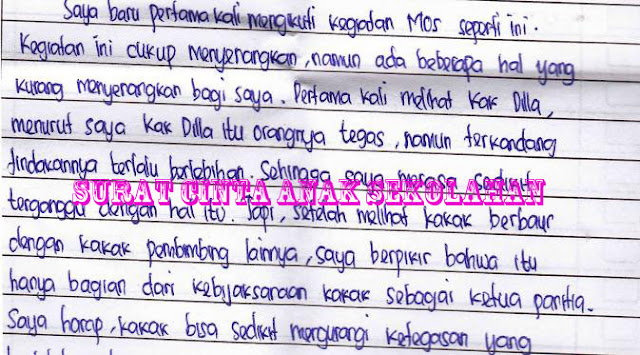 Saya baru pertama kali mengikuti kegiatan MOS seperti ini.
Kegiatan ini cukup menyenangkan, namun ada beberapa hal yang
kurang menyenangkan bagi saya. Pertama kali melihat kak Dilla,
menurut saya kak Dilla itu orangnya tegas, namun terkadang
tindakannya terlalu berlebihan. Sehingga saya merasa sedikit
SURAT CINTA ANAK SEKOLAHAN
terganggu dengan hal itu. Tapi, setelah melihat kakak berbaur
dengan kakak pembimbing lainnya, saya berpikir bahwa itu
hanya bagian dari kebijaksanaan kakak sebagai ketua panitia.
Saya harap, kakak bisa sedikit mengurangi ketegasan yang